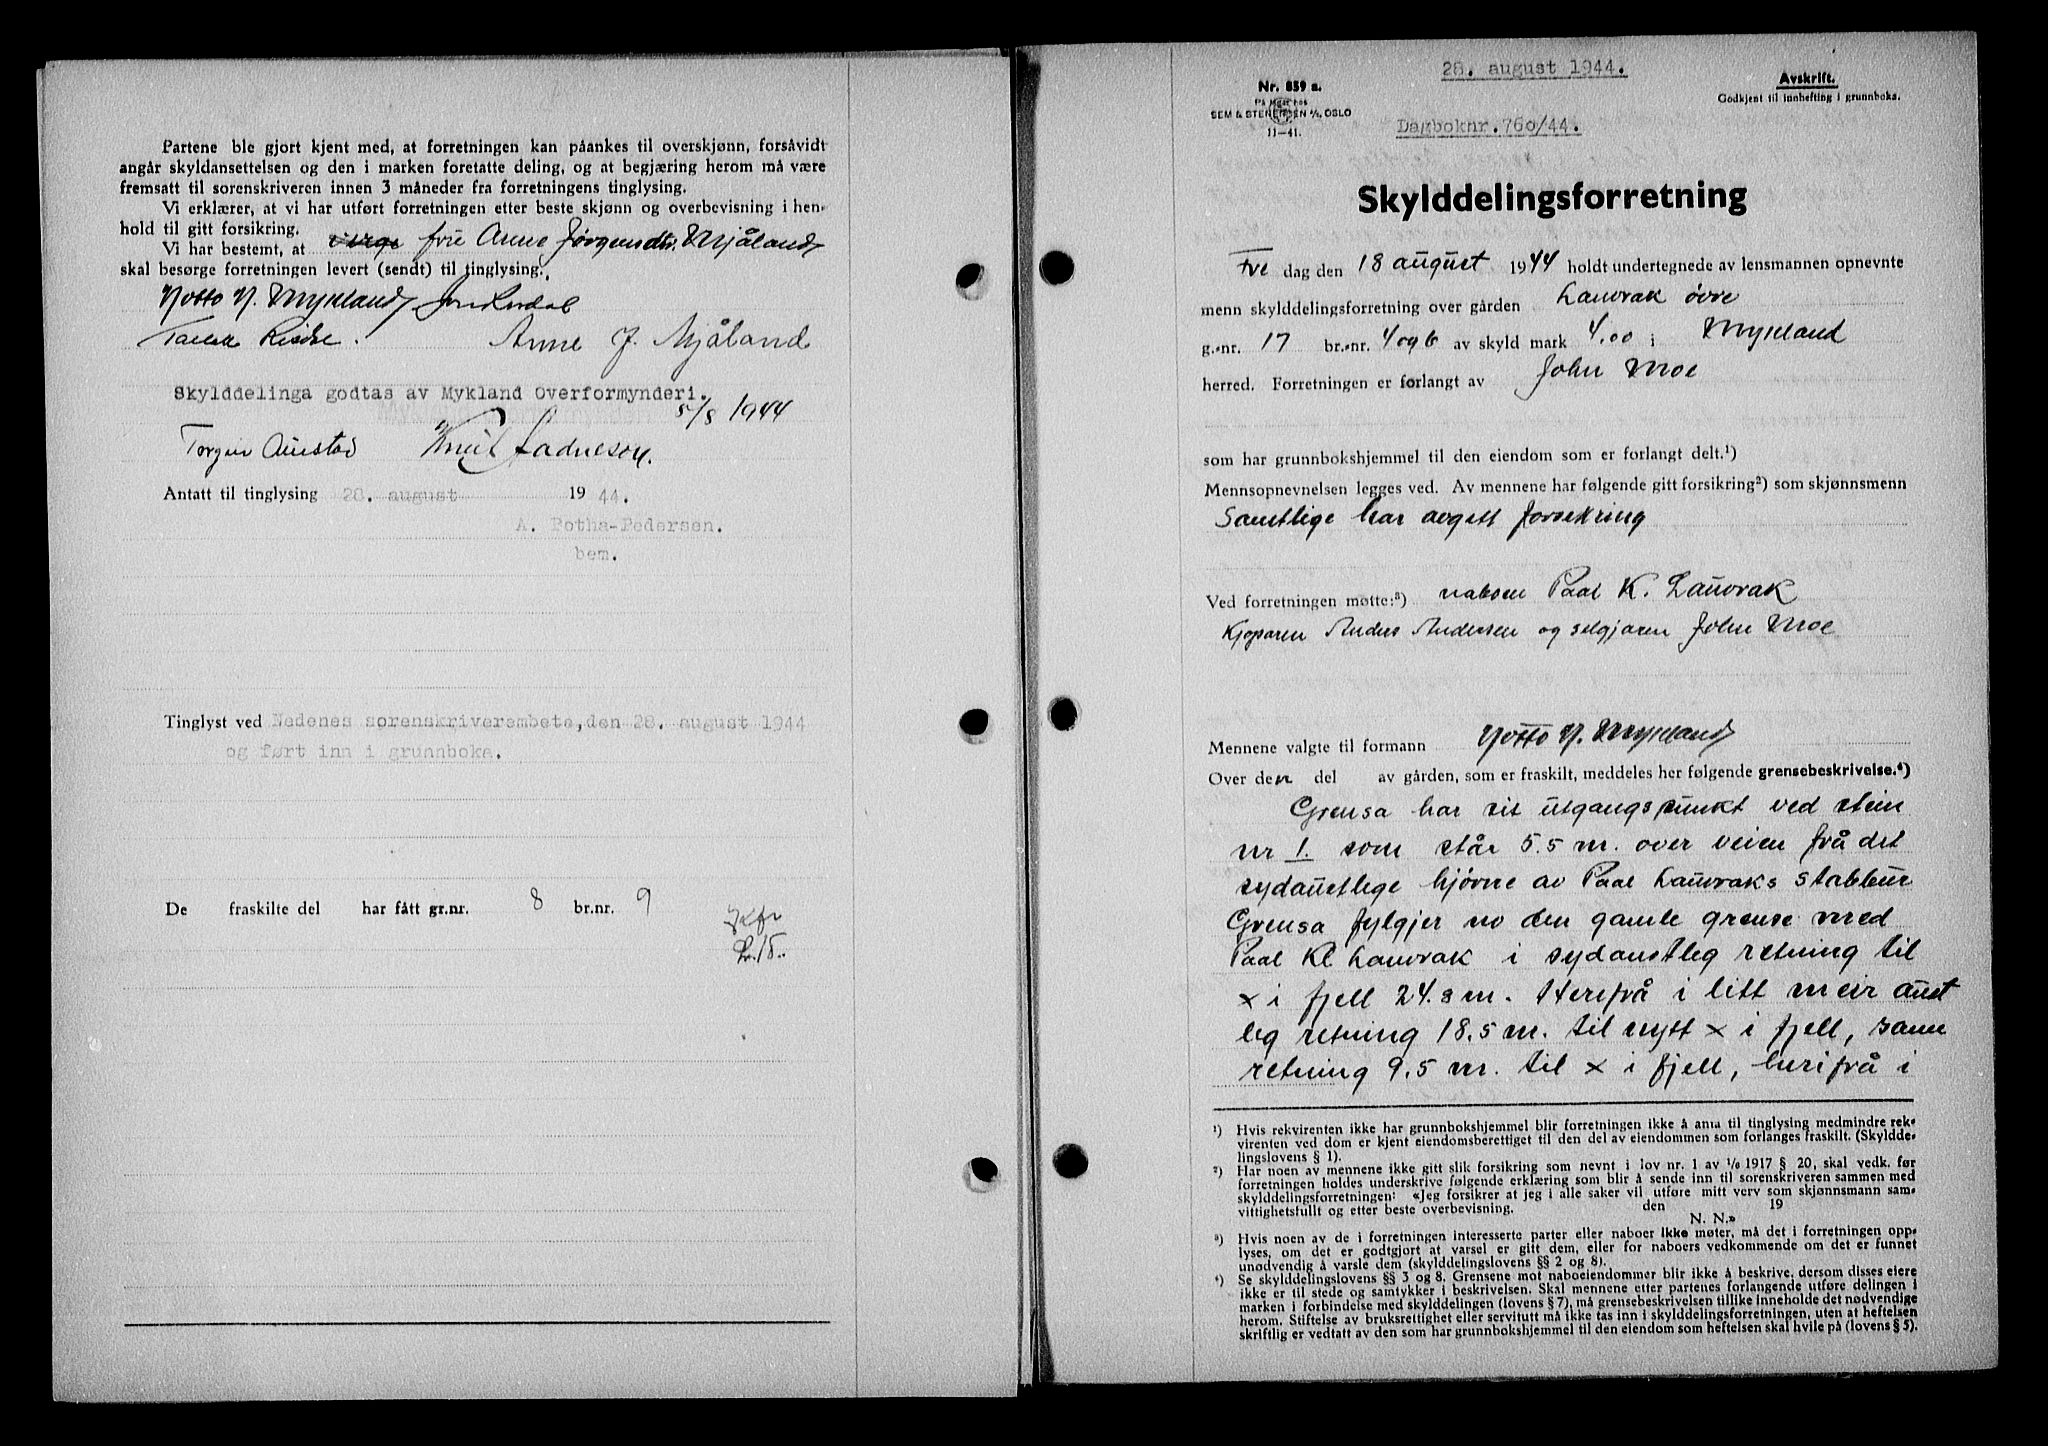 Partene ble gjort kjent med, at forretningen kan påankes til overskjønn, forsåvidt
angår skyldansettelsen og den i marken foretatte deling, og at begjæring herom må være
fremsatt til sorenskriveren innen 3 måneder fra forretningens tinglysing.
Vi erklærer, at vi har utført forretningen etter beste skjønn og overbevisning i hen-
hold til gitt forsikring.
Vi har bestemt, at frue Anne Jørgensdtr. Mjåland
skal besørge forretningen levert (sendt) til tinglysing.
Notto N. Mykland
Anne J. Mjåland
Skylddelinga godtas av Mykland Overformynderi.
5/8 1944
Knut
Antatt til tinglysing 28. august 1944.
A. Botha-Pedersen.
bem.
Tinglyst ved Nedenes sorenskriverembete, den 28. august 1944
og ført inn i grunnboka.
De fraskilte del har fått gr.nr. 8 br.nr. 9
15.
28. august 1944.
Avskrift.
Godkjent til innhefting i grunnboka.
Nr. 859 a.
På lager hos
SEM & STENERSEN A/S, OSLO
11-41.
Dagboknr. 760/44.
Skylddelingsforretning
Fre dag den 18 august 1944 holdt undertegnede av lensmannen opnevnte
menn skylddelingsforretning over gården Lauvrak øvre
g.-nr. 17 br.-nr. 4 og 6 av skyld mark 4,00 i Mykland
herred. Forretningen er forlangt av John Moe
som har grunnbokshjemmel til den eiendom som er forlangt delt.¹)
Mennsopnevnelsen legges ved. Av mennene har følgende gitt forsikring²) som skjønnsmenn
Samtlige har avgett forsikring
Ved forretningen møtte:³) naboen Paal K. Lauvrak
Kjøparen Anders Andersen og selgjaren John Moe
Mennene valgte til formann Notto N. Mykland
Over den del av gården, som er fraskilt, meddeles her følgende grensebeskrivelse.⁴)
Grensa har sit utgangspunkt ved stein
nr 1. som står 5.5 m. over veien frå det
sydaustlige hjørne av Paal Lauvraks stabbur
Grensa fylgjer no den gamle grense med
Paal Kl Lauvrak i sydaustleg retning til
x i fjell 24.8 m. Herifrå i litt meir aust
leg retning 18.5 m. til nytt x i fjell, same
retning 9.5 m. til x i fjell, herifrå i
¹) Hvis rekvirenten ikke har grunnbokshjemmel blir forretningen ikke å anta til tinglysing medmindre rek-
virenten ved dom er kjent eiendomsberettiget til den del av eiendommen som forlanges fraskilt. (Skyldde-
lingslovens § 1).
²) Har noen av mennene ikke gitt slik forsikring som nevnt i lov nr. 1 av 1/6 1917 § 20, skal vedk. før
forretningen holdes underskrive følgende erklæring som blir å sende inn til sorenskriveren sammen med
skylddelingsforretningen: «Jeg forsikrer at jeg i alle saker vil utføre mitt verv som skjønnsmann sam-
vittighetsfullt og etter beste overbevisning. den 19
N. N.»
³) Hvis noen av de i forretningen interesserte parter eller naboer ikke møter, må det i forretningen opp-
lyses, om det er godtgjort at varsel er gitt dem, eller for naboers vedkommende om det er funnet
unødvendig å varsle dem (skylddelingslovens §§ 2 og 8).
⁴) Se skylddelingslovens §§ 3 og 8. Grensene mot naboeiendommer blir ikke å beskrive, dersom disses eiere
ikke er til stede og samtykker i beskrivelsen. Skal mennene etter partenes forlangende utføre delingen i
marken i forbindelse med skylddelingen (lovens § 7), må grensebeskrivelsen tillike inneholde det nødvendige
herom. Stiftelse av bruksrettighet eller servitutt må ikke tas inn i skylddelingsforretningen, uten at heftelsen
skriftlig er vedtatt av den som har grunnbokshjemmel til den eiendom som heftelsen skal hvile på (lovens § 5).